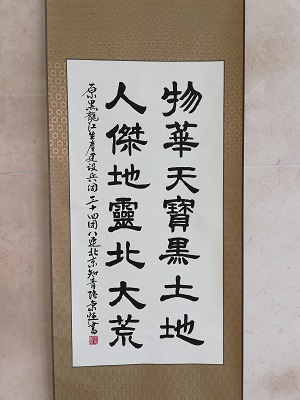 物華天寶黒土地
人傑地靈北大荒
原黑龍江生産建設兵団三十四团八連北京知青張京旺書